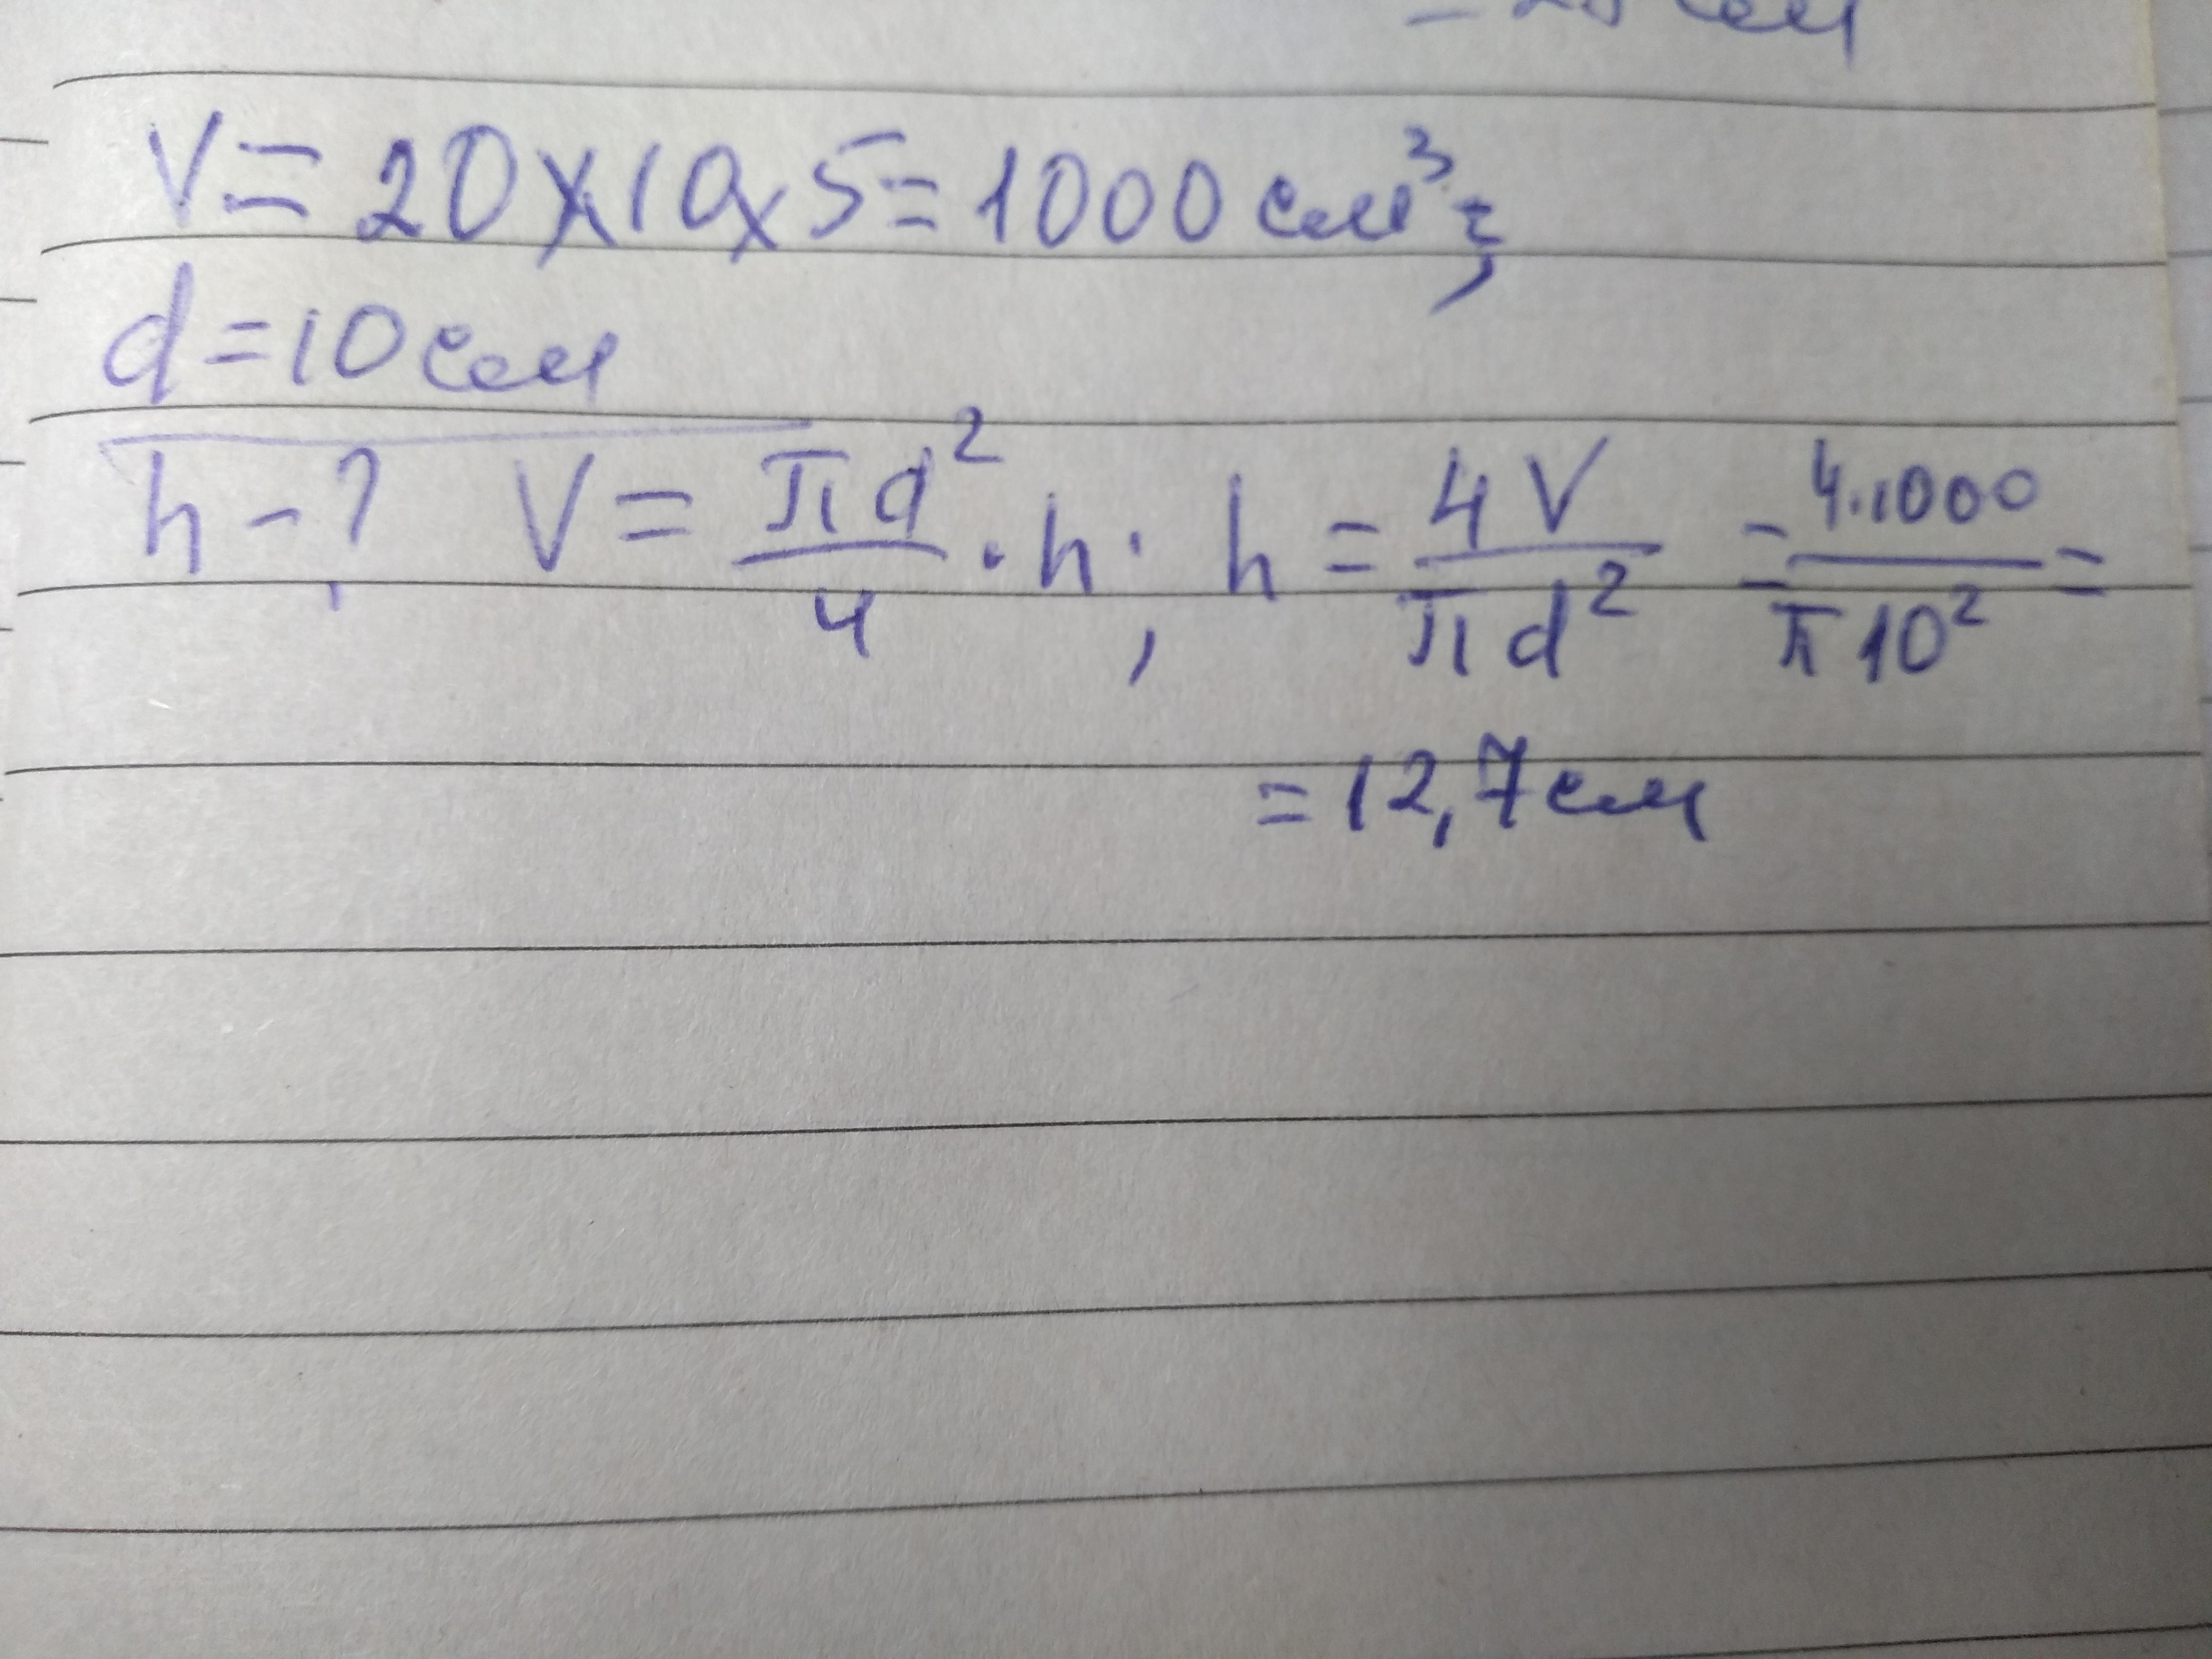 V = 20 x 10 x 5 = 1000 см³;
d = 10 см
h - ? V = πd²/4 · h; h = 4V/πd² = 4·1000/π10² =
= 12,7 см